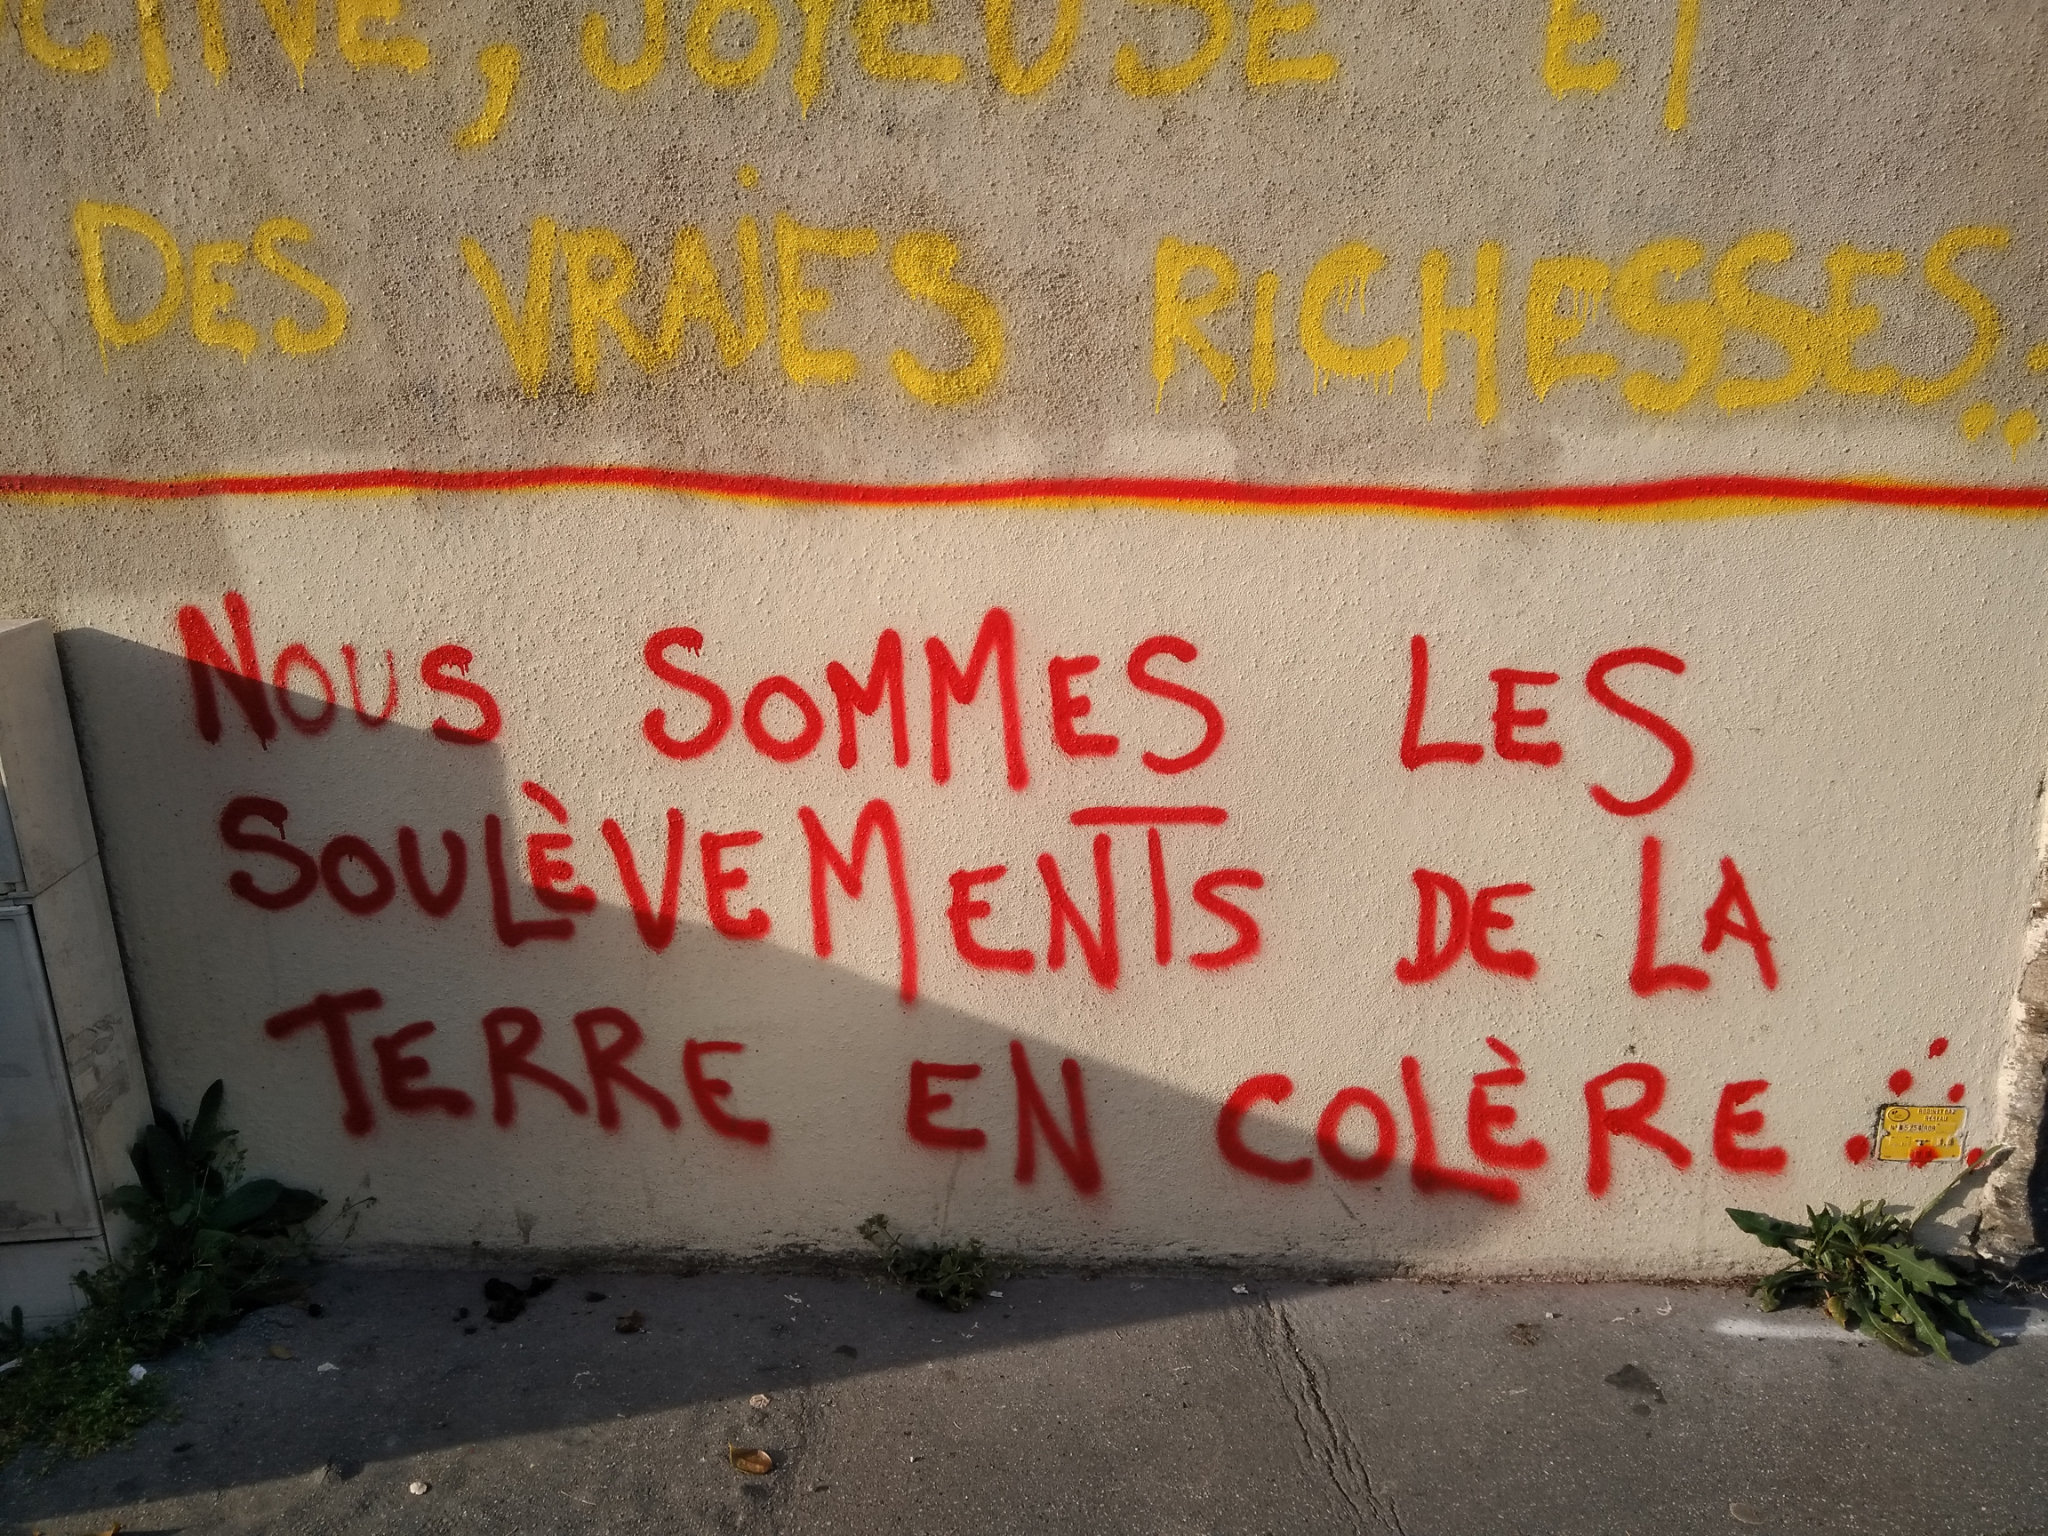 CTIVE, JOYEUSE ET
DES VRAiES RICHESSES...
NOUS SOMMES LES
SOULÈVEMENTS DE LA
TERRE EN COLÈRE
ROBINET GAZ